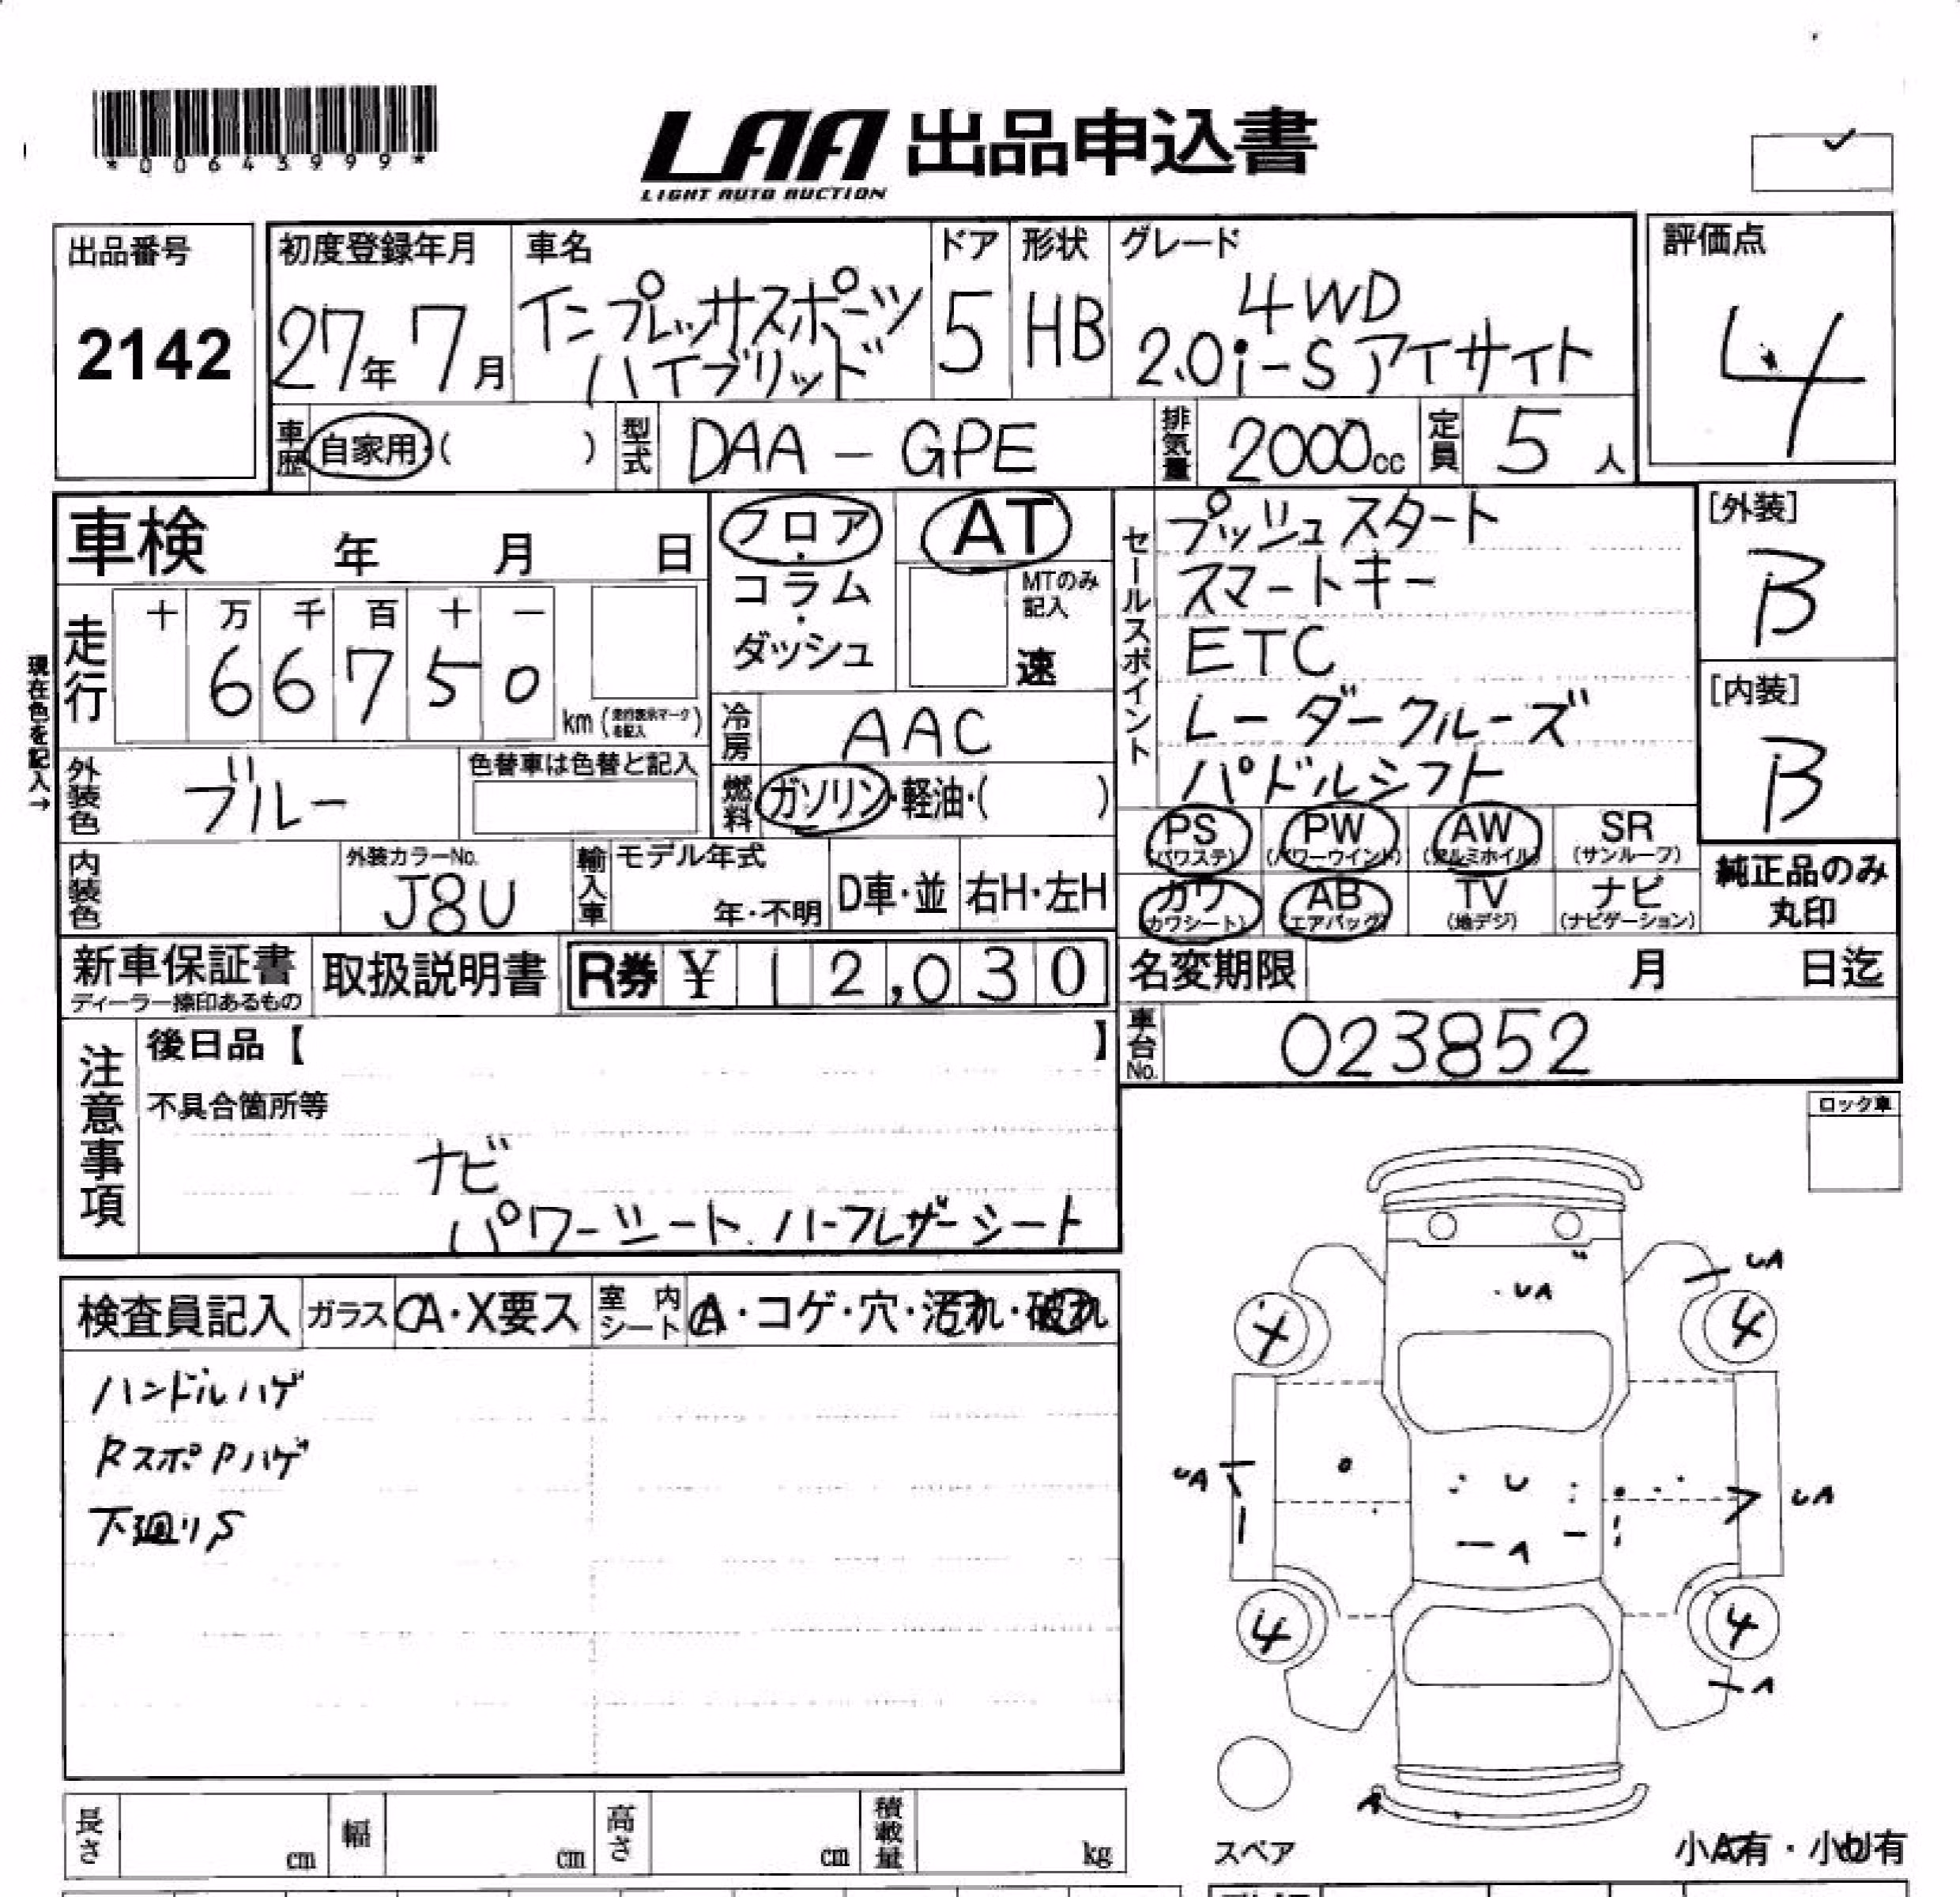 *00643999*
LAA 出品申込書
LIGHT AUTO AUCTION
出品番号
2142
初度登録年月
27年 7月
車名
インプレッサスポーツ
ハイブリッド
ドア
5
形状
HB
グレード
4WD
2.0i-S アイサイト
評価点
4
車歴 自家用・( )
型式 DAA - GPE
排気量 2000cc
定員 5人
車検 年 月 日
フロア・
コラム・
ダッシュ
AT
MTのみ
記入
速
セールスポイント
プッシュスタート
スマートキー
ETC
レーダークルーズ
パドルシフト
[外装]
B
[内装]
B
現在色を記入→
走行
十 万 千 百 十 一
6 6 7 5 0
km (走行表示マークを記入)
冷房 AAC
外装色 ブルー
色替車は色替と記入
燃料 ガソリン・軽油・( )
PS (パワステ)
PW (パワーウインド)
AW (アルミホイル)
SR (サンルーフ)
カワ (カワシート)
AB (エアバッグ)
TV (地デジ)
ナビ (ナビゲーション)
純正品のみ
丸印
内装色
外装カラーNo.
J8U
輸入車
モデル年式
年・不明
D車・並
右H・左H
新車保証書
ディーラー捺印あるもの
取扱説明書
R券 ¥12,030
名変期限 月 日迄
車台No. 023852
注意事項
後日品【 】
不具合箇所等
ナビ
パワーシート、ハーフレザーシート
ロック車
検査員記入
ガラス A・X要ス
室内シート A・コゲ・穴・汚れ・破れ
ハンドルハゲ
RスポPハゲ
下廻りS
UA
UA
4
4
UA
U
UA
A
4
4
A
A
スペア
小A有・小U有
長さ cm
幅 cm
高さ cm
積載量 kg